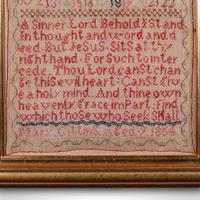 A Sinner Lord Behold I Stand
In thought and word and d
eed. But JeSuS. SitS at thy
right hand. For Such to inter
cede. Thou Lord canSt chan
ge thiS evil heart: CanSt giv
e a holy mind. And thine own
heavenly Grace imPart: Find
which those who Seek Shall
Mary Aged 1854